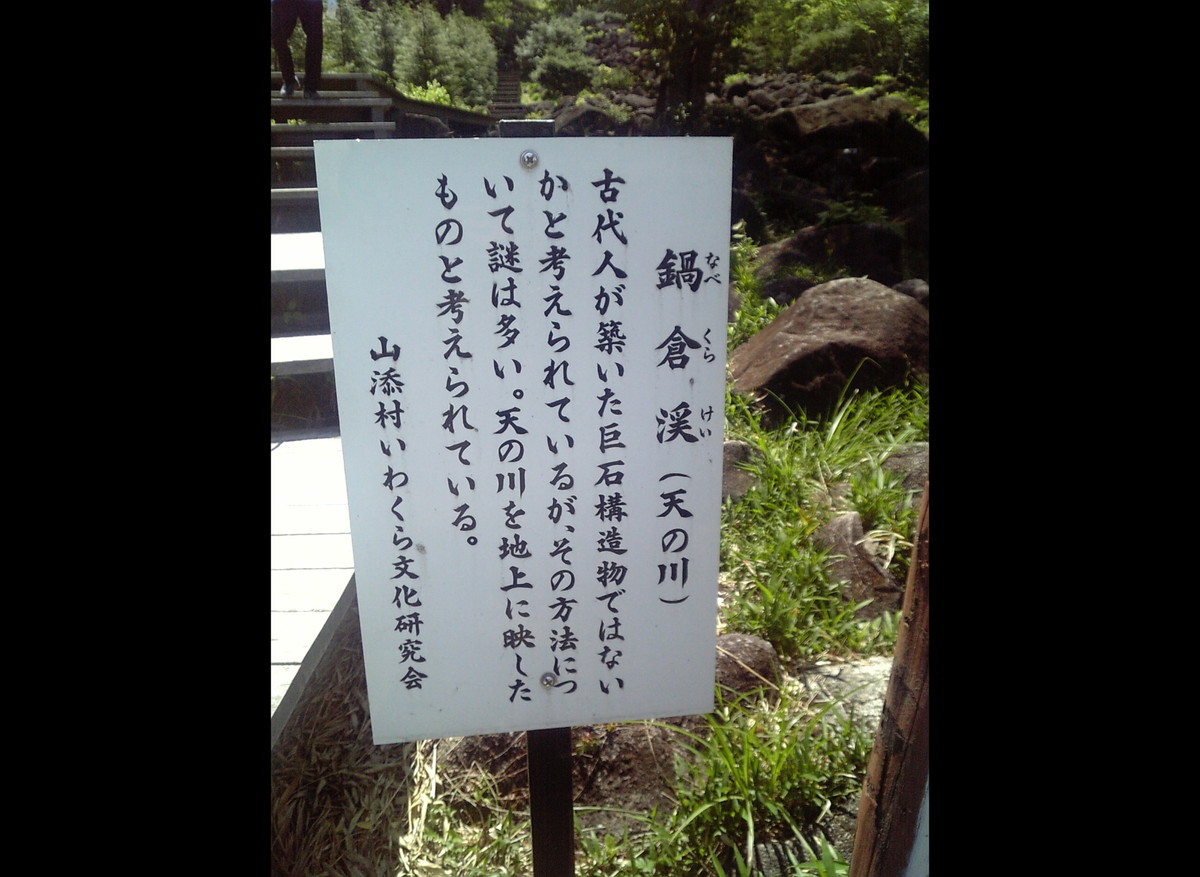 鍋倉渓(天の川)
なべくらけい
古代人が築いた巨石構造物ではない
かと考えられているが、その方法につ
いて謎は多い。天の川を地上に映した
ものと考えられている。
山添村いわくら文化研究会